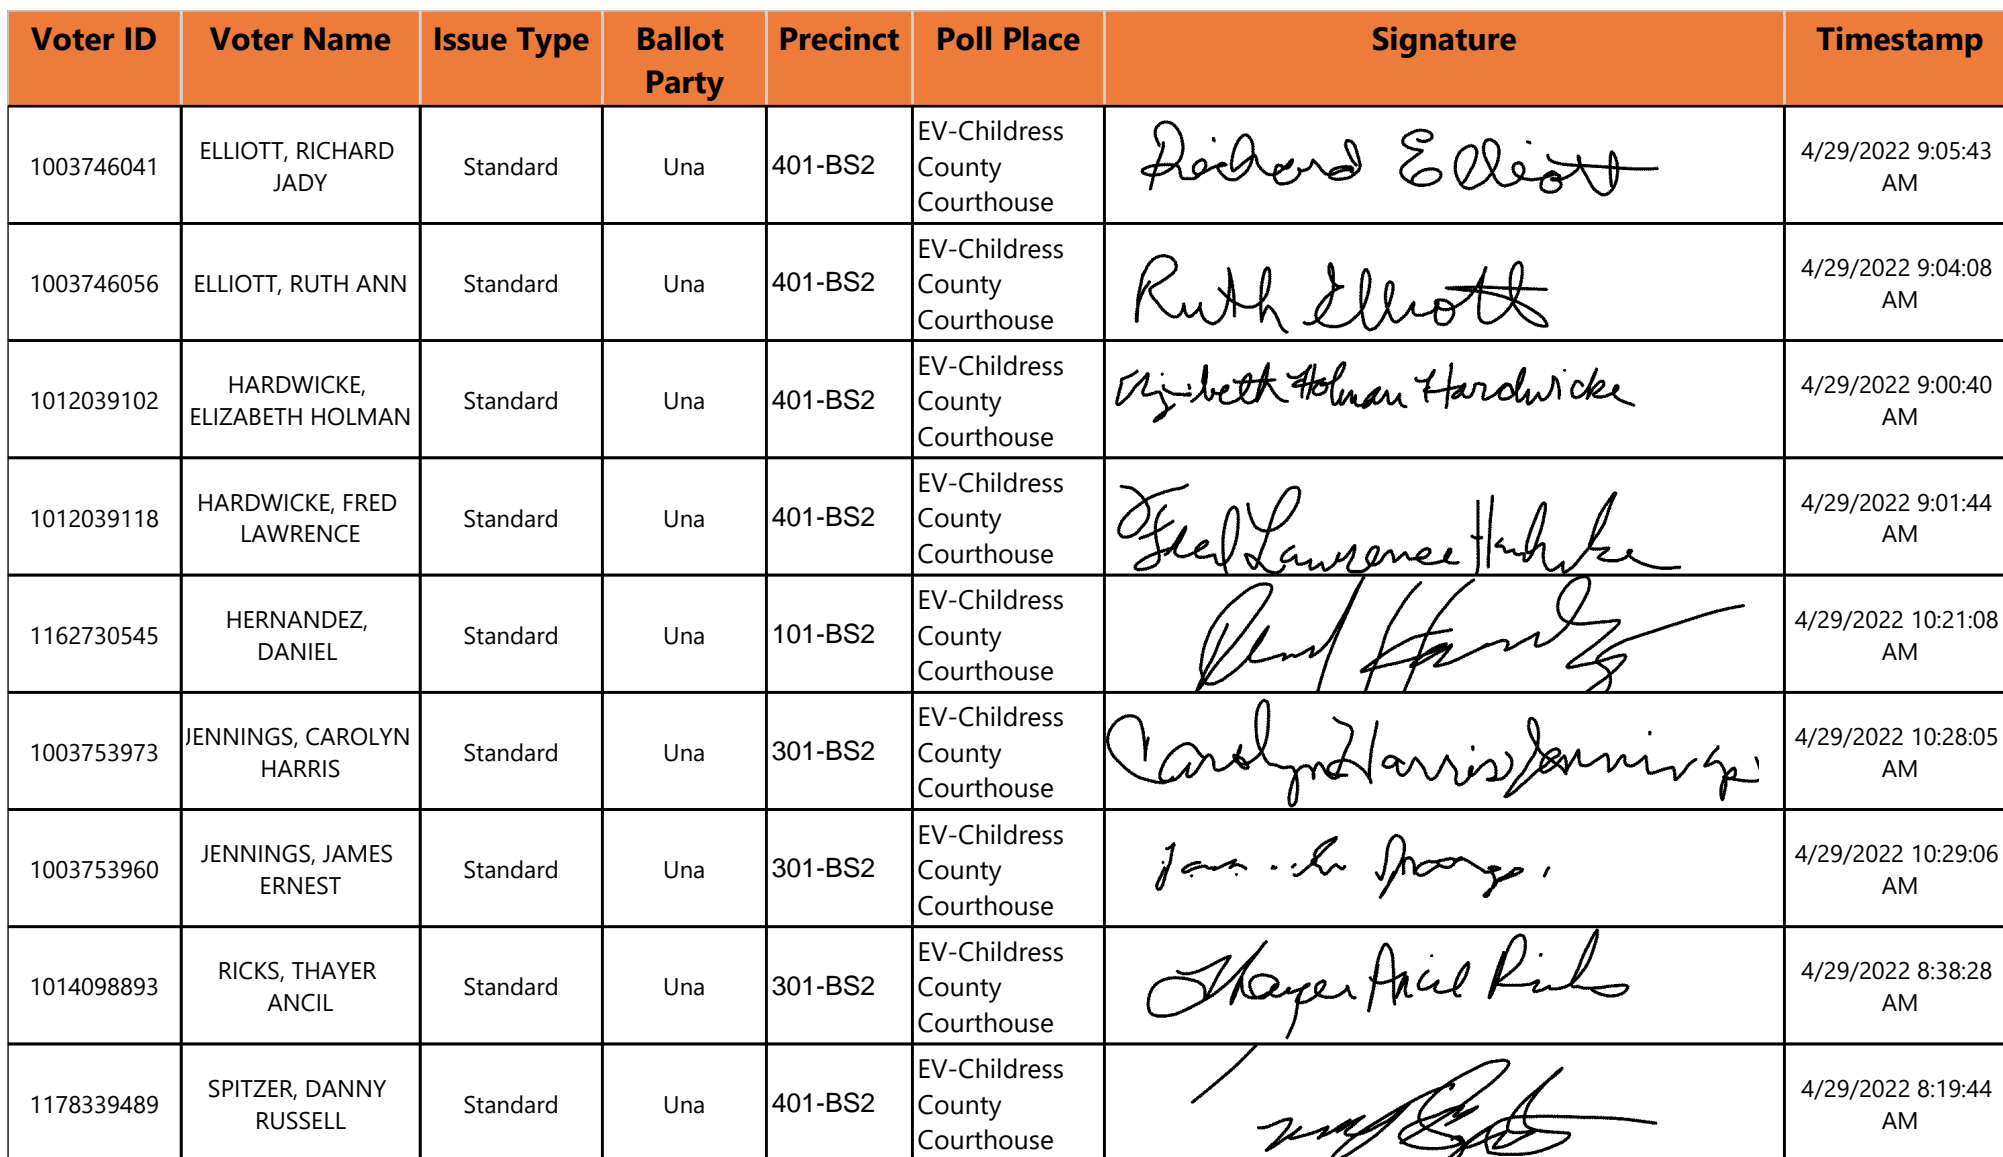 Voter ID Voter Name Issue Type Ballot Party Precinct Poll Place Signature Timestamp
1003746041 ELLIOTT, RICHARD JADY Standard Una 401-BS2 EV-Childress County Courthouse Richard Elliott 4/29/2022 9:05:43 AM
1003746056 ELLIOTT, RUTH ANN Standard Una 401-BS2 EV-Childress County Courthouse Ruth Elliott 4/29/2022 9:04:08 AM
1012039102 HARDWICKE, ELIZABETH HOLMAN Standard Una 401-BS2 EV-Childress County Courthouse Elizabeth Holman Hardwicke 4/29/2022 9:00:40 AM
1012039118 HARDWICKE, FRED LAWRENCE Standard Una 401-BS2 EV-Childress County Courthouse Fred Lawrence Hardwicke 4/29/2022 9:01:44 AM
1162730545 HERNANDEZ, DANIEL Standard Una 101-BS2 EV-Childress County Courthouse 4/29/2022 10:21:08 AM
1003753973 JENNINGS, CAROLYN HARRIS Standard Una 301-BS2 EV-Childress County Courthouse Carolyn Harris Jennings 4/29/2022 10:28:05 AM
1003753960 JENNINGS, JAMES ERNEST Standard Una 301-BS2 EV-Childress County Courthouse 4/29/2022 10:29:06 AM
1014098893 RICKS, THAYER ANCIL Standard Una 301-BS2 EV-Childress County Courthouse Thayer Ancil Ricks 4/29/2022 8:38:28 AM
1178339489 SPITZER, DANNY RUSSELL Standard Una 401-BS2 EV-Childress County Courthouse 4/29/2022 8:19:44 AM